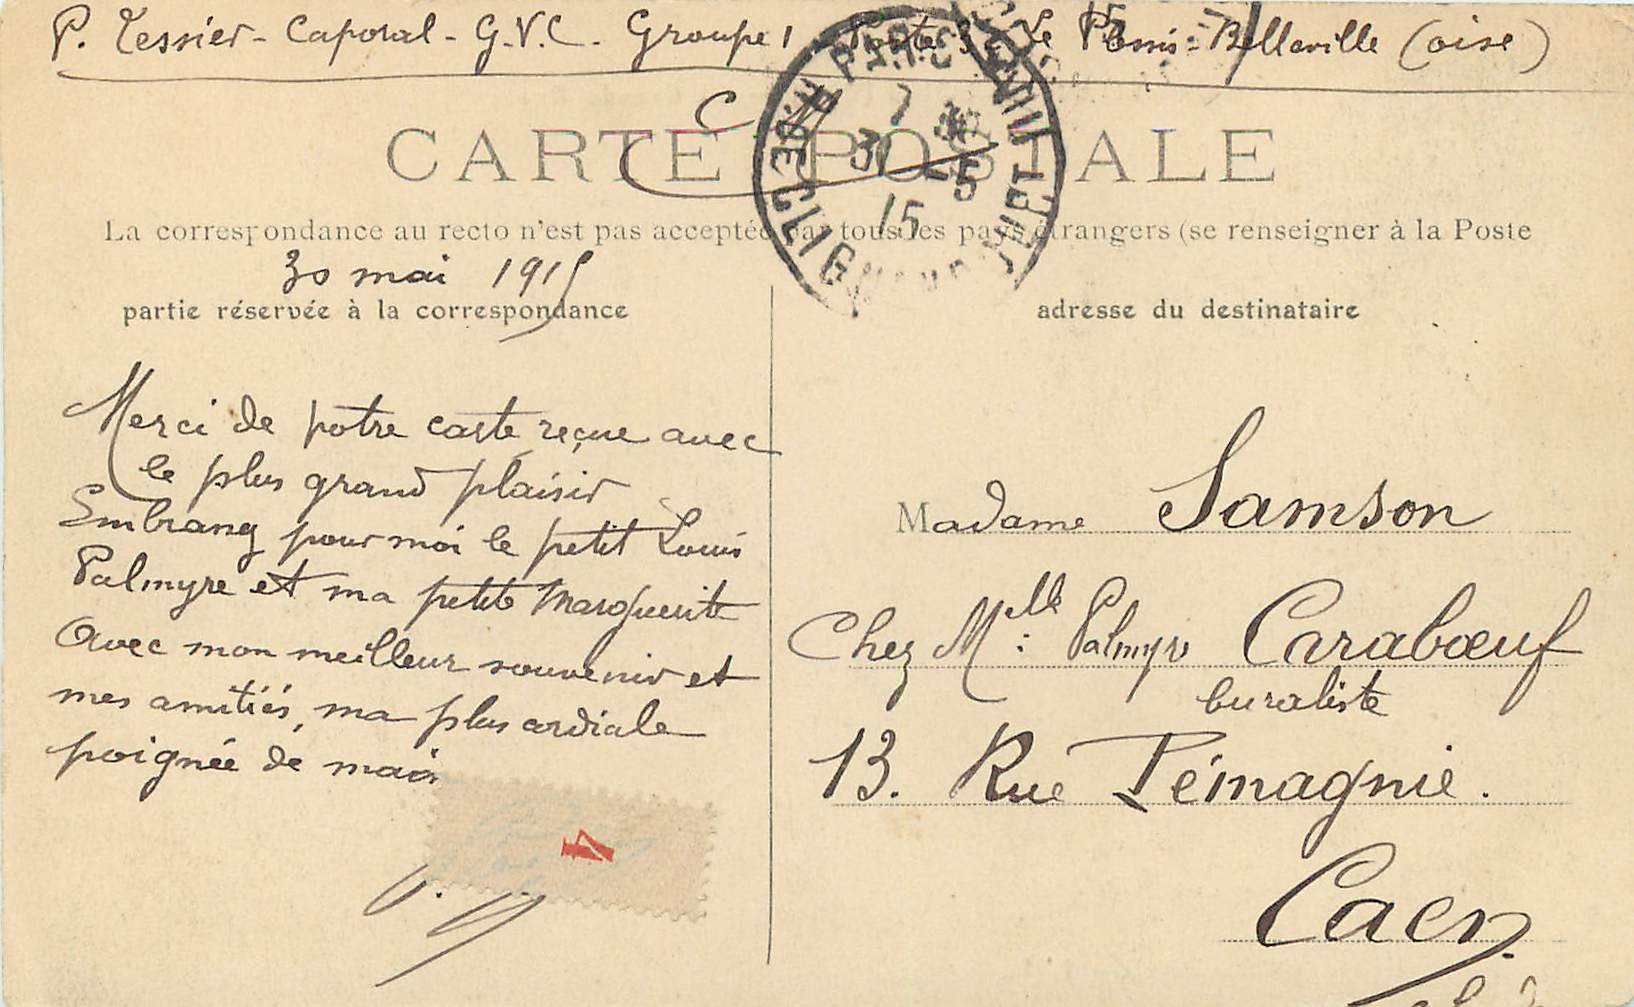 P. Tessier - Caporal - G.V.C. Groupe 1 Poste 3 Le Plessis-Belleville (oise)
CARTE POSTALE
PARIS
7 31 -5 15
R. DE CLIGNANCOURT
La correspondance au recto n'est pas acceptée par tous les pays étrangers (se renseigner à la Poste
30 mai 1915
partie réservée à la correspondance
Merci de votre carte reçue avec
le plus grand plaisir
Embrassez pour moi le petit Louis
Palmyre et ma petite Marguerite
Avec mon meilleur souvenir et
mes amitiés, ma plus cordiale
poignée de main
4
adresse du destinataire
Madame Samson
Chez Mlle Palmyre Carabœuf
buraliste
13. Rue Pémagnie.
Caen